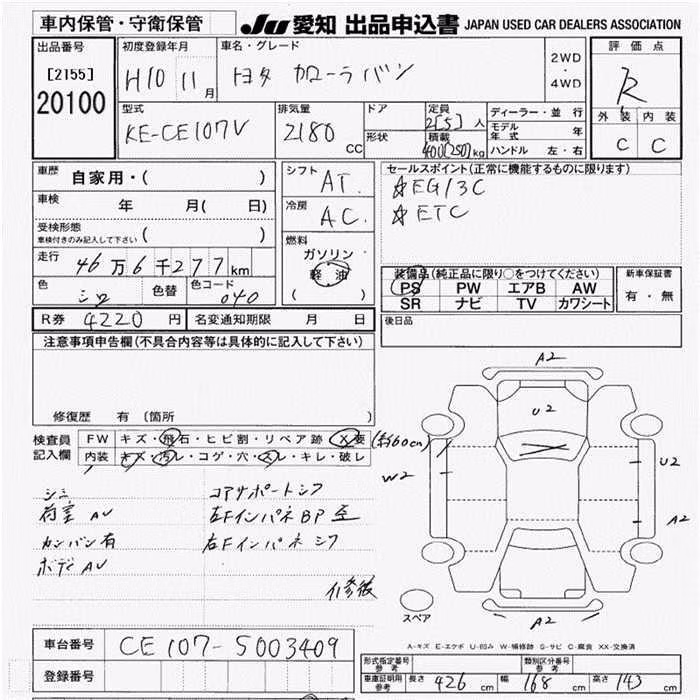 車内保管・守衛保管 JU 愛知 出品申込書 JAPAN USED CAR DEALERS ASSOCIATION
出品番号 初度登録年月 車名・グレード 評価点
[2155] H10 11月 トヨタ カローラバン 2WD・4WD R
20100
型式 排気量 ドア 定員 ディーラー・並行 外装 内装
KE-CE107V 2180 CC 形状 2[5]人 モデル年式 年 C C
積載 400[250]kg ハンドル 左・右
車歴 自家用・( ) シフト AT. セールスポイント(正常に機能するものに限ります)
車検 年 月( 日) 冷房 AC. ☆EG13C
受検形態 ( ) ☆ETC
車検付きのみ記入して下さい 燃料
走行 46万6千277km ガソリン
色 シロ 色替 色コード 040 軽油
( )
装備品(純正品に限り○をつけてください) 新車保証書
PS PW エアB AW 有・無
SR ナビ TV カワシート
R券 4220円 名変通知期限 月 日 後日品
注意事項申告欄(不具合内容等は具体的に記入して下さい)
修復歴 有 〔箇所 〕
検査員記入欄 FW キズ・飛石・ヒビ割・リペア跡・X要 (約60cm)
内装 キズ・汚レ・コゲ・穴・スレ・キレ・破レ
シミ コアサポートシフ
荷室AU 左FインパネBP歪
カンバン有 右Fインパネシフ
ボデAU
修後
A2
U2
W2
U2
A2
A2
スペア
A-キズ E-エクボ U-凹み W-補修跡 S-サビ C-腐食 XX-交換済
車台番号 CE107-5003409
登録番号
形式指定番号 参考 類別区分番号 参考
車庫証明用 参考 長さ 426cm 幅 168cm 高さ 143cm